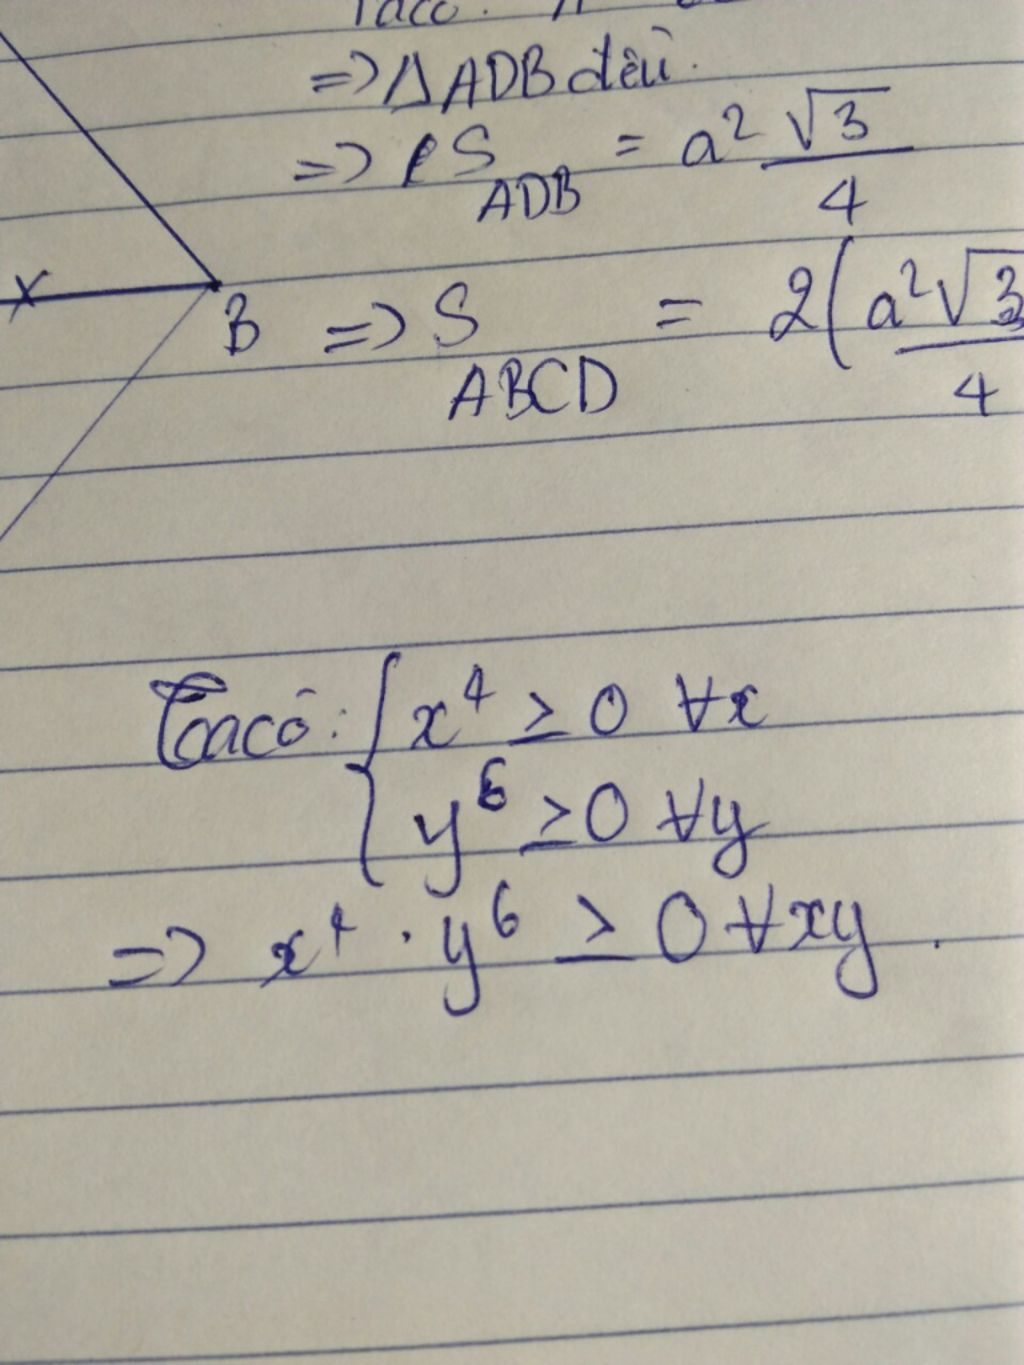 Taco:
=> ΔADB đều.
=> S_ADB = a² √3/4
x
B => S_ABCD = 2(a²√3/4
Taco: { x⁴ ≥ 0 ∀x
y⁶ ≥ 0 ∀y
=> x⁴ . y⁶ ≥ 0 ∀xy .